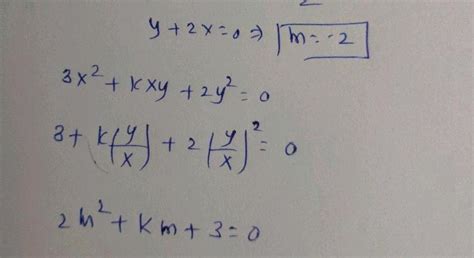 y + 2x = 0 ⇒ m = -2
3x² + kxy + 2y² = 0
3 + k(y/x) + 2(y/x)² = 0
2m² + km + 3 = 0